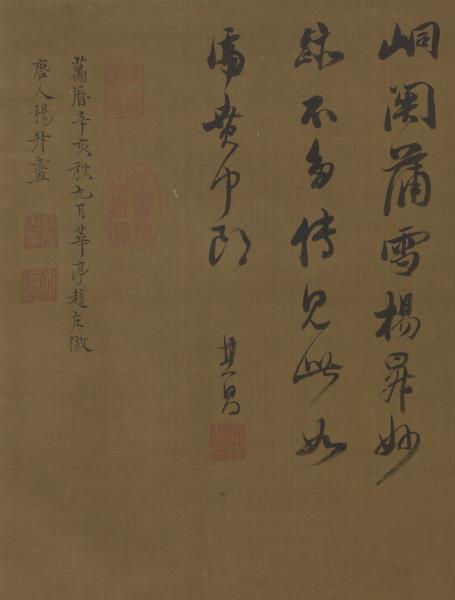 峒關蒲雪楊昇妙
跡不多傳見此如
虎賁中郎
其昌
萬曆辛亥秋九月華亭趙左倣
唐人楊升畫